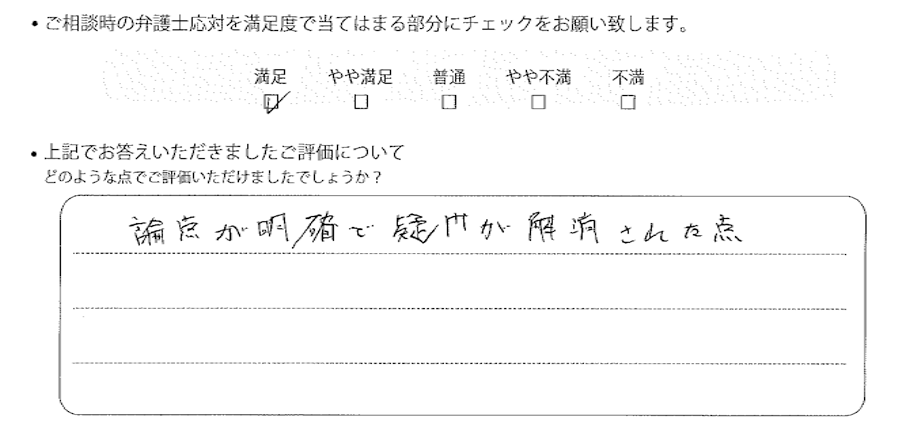 ・ご相談時の弁護士応対を満足度で当てはまる部分にチェックをお願い致します。
満足 やや満足 普通 やや不満 不満
・上記でお答えいただきましたご評価について
どのような点でご評価いただけましたでしょうか？
論点が明確で疑問が解消された点